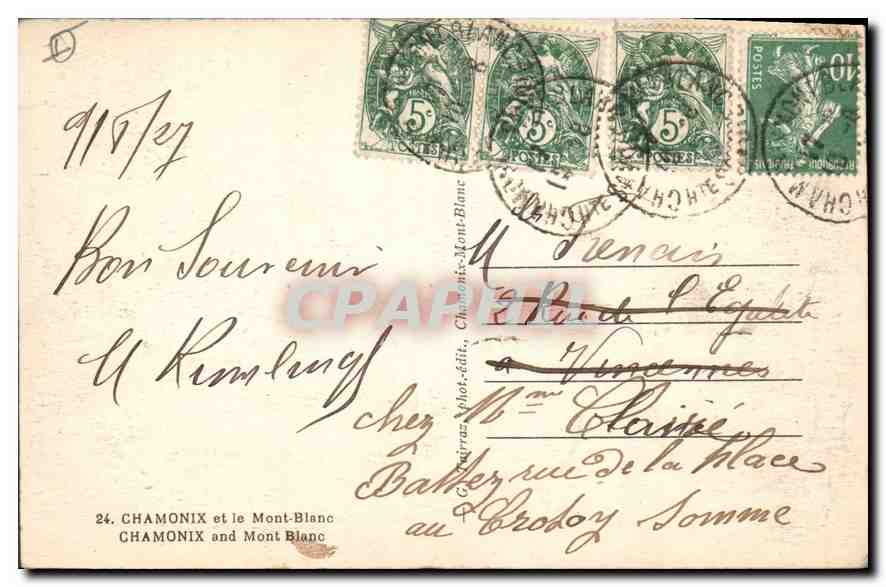 9/8/27
Bon Souvenir
M
24. CHAMONIX et le Mont-Blanc
CHAMONIX and Mont Blanc
phot.-édit., Chamonix-Mont-Blanc
5c
POSTES
5c
POSTES
5c
POSTES
10
POSTES
REPUBLIQUE FRANÇAISE
CHAMONIX MONT-BLANC
HTE
M Renais
2 Rue de l'Egalité
a Vincennes
chez Mme
Battez rue de la Place
au Crotoy Somme
CPAPHIL